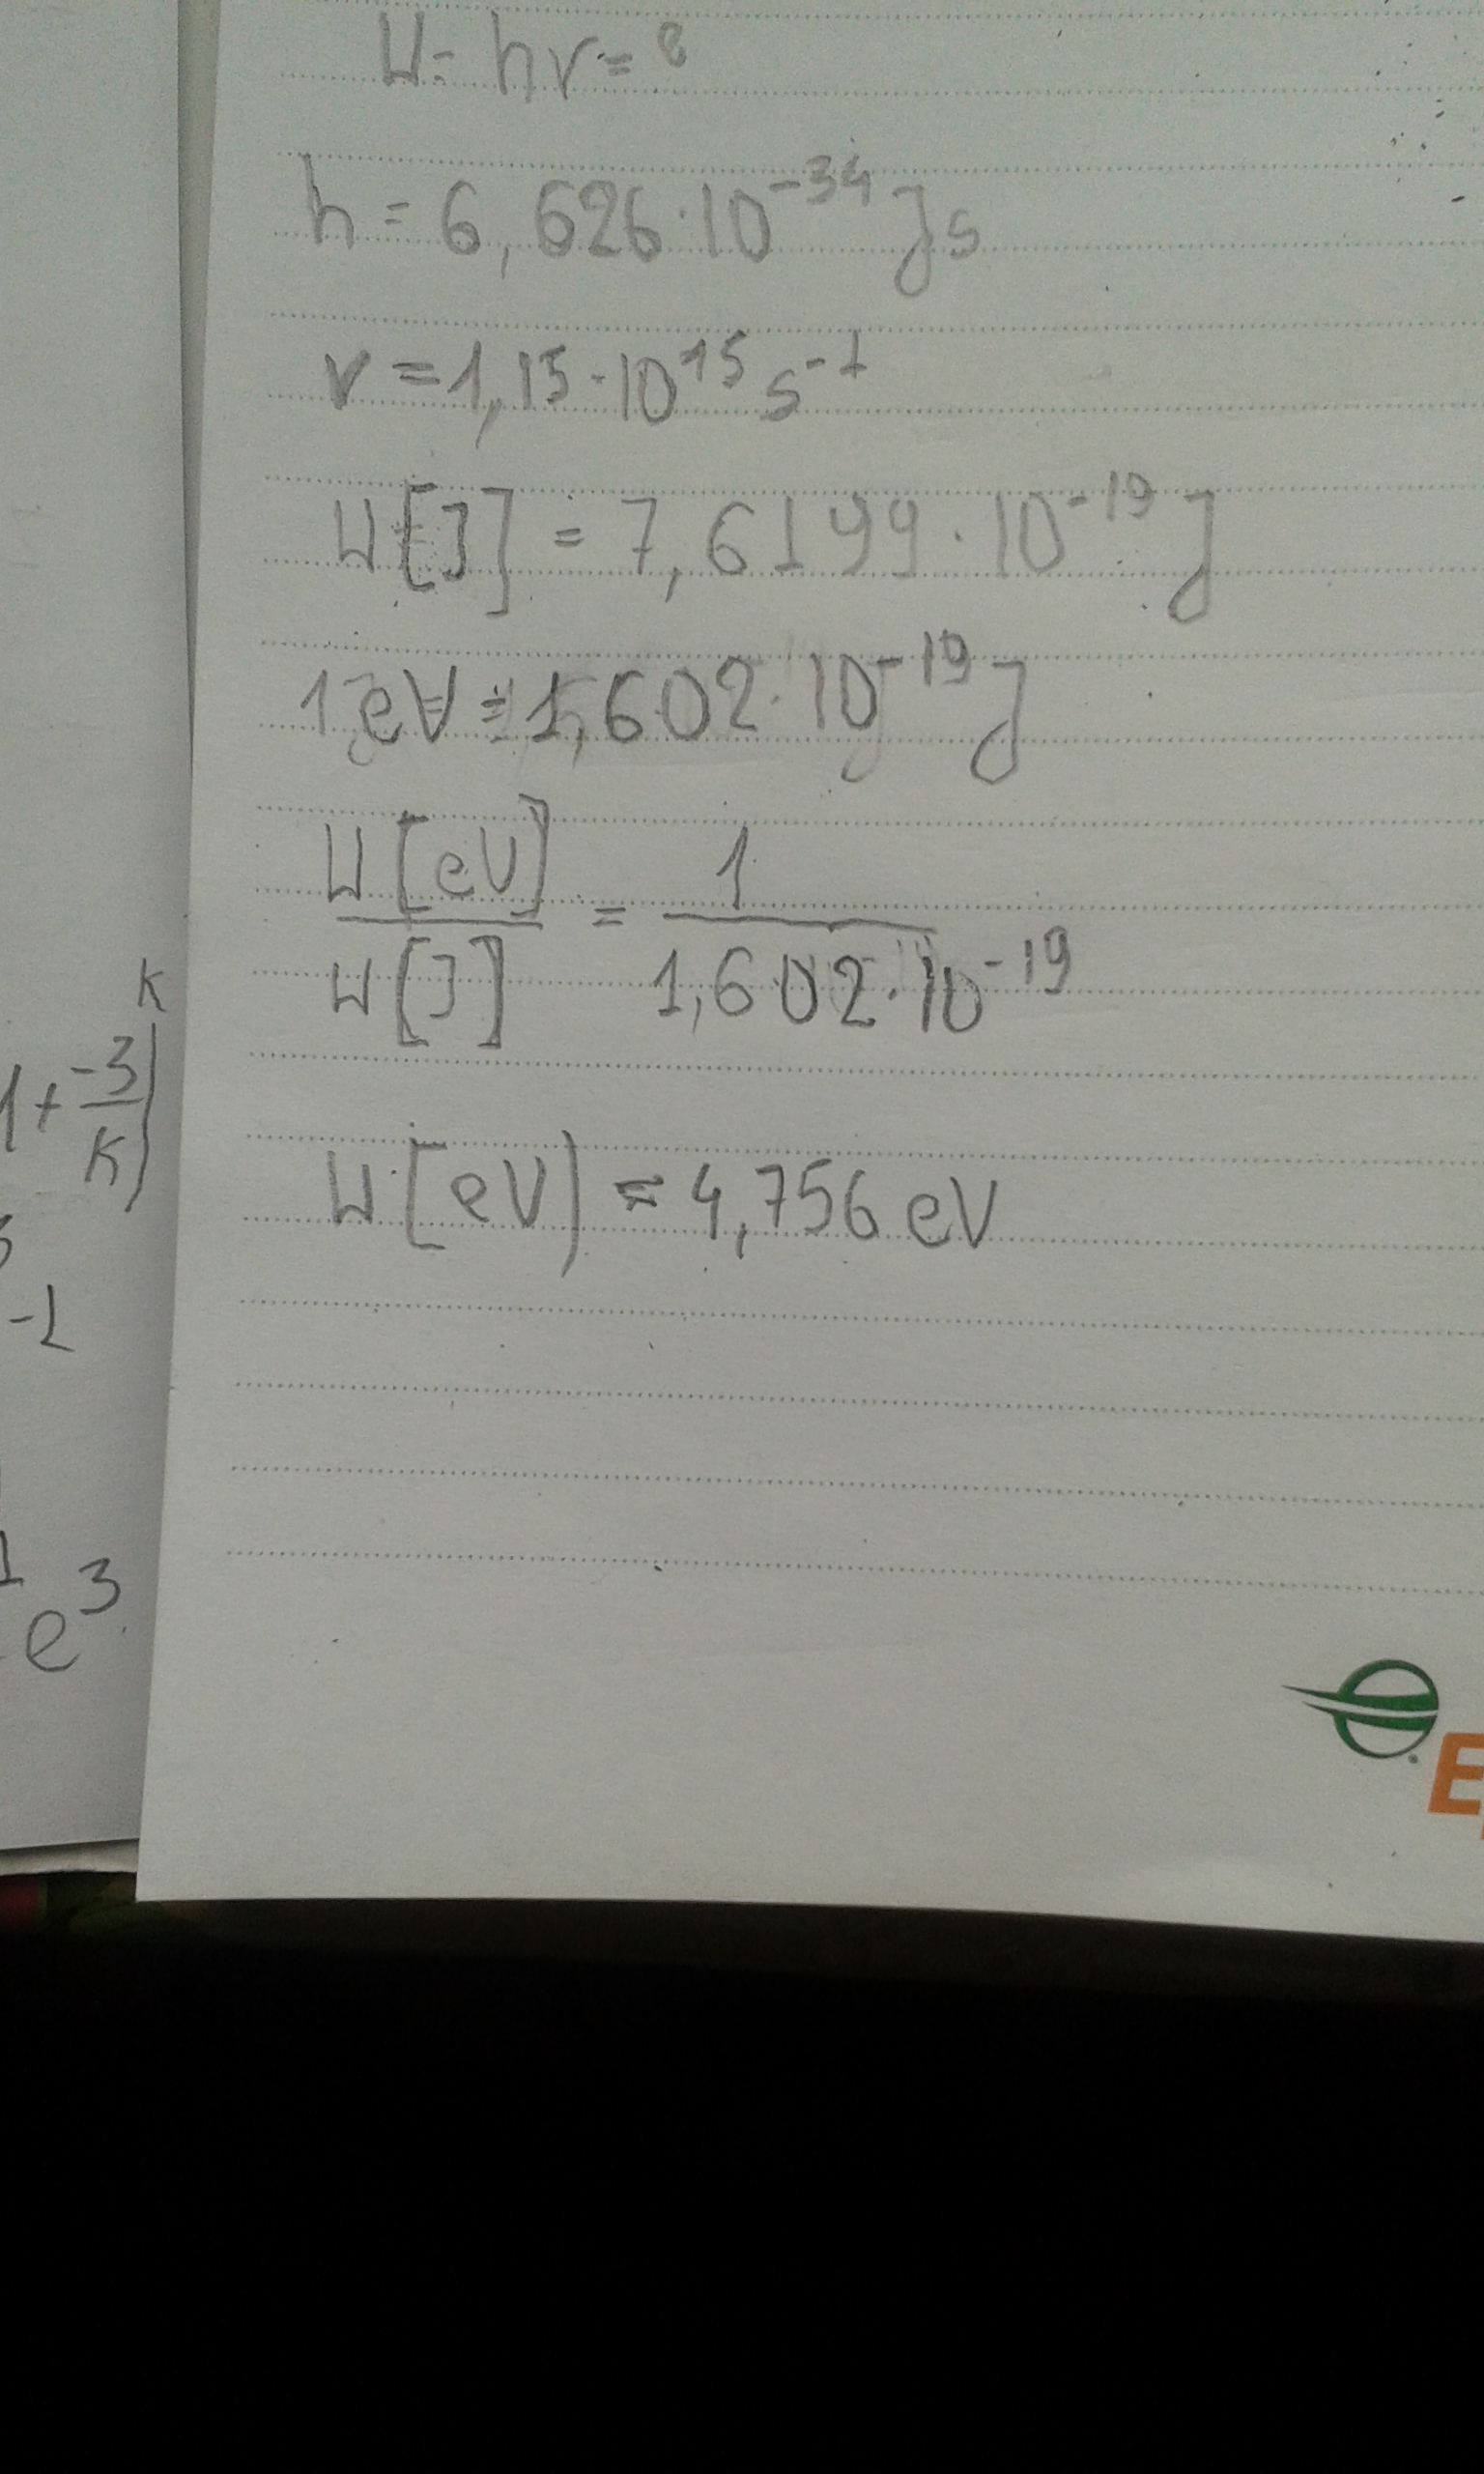 W = hν = e
h = 6,626·10⁻³⁴ Js
ν = 1,15·10¹⁵ s⁻¹
W[J] = 7,6199·10⁻¹⁹ J
1 eV = 1,602·10⁻¹⁹ J
W[eV]/W[J] = 1/1,602·10⁻¹⁹
W[eV) ≈ 4,756 eV
K
1+ -3/K)
-1
1
e³
E